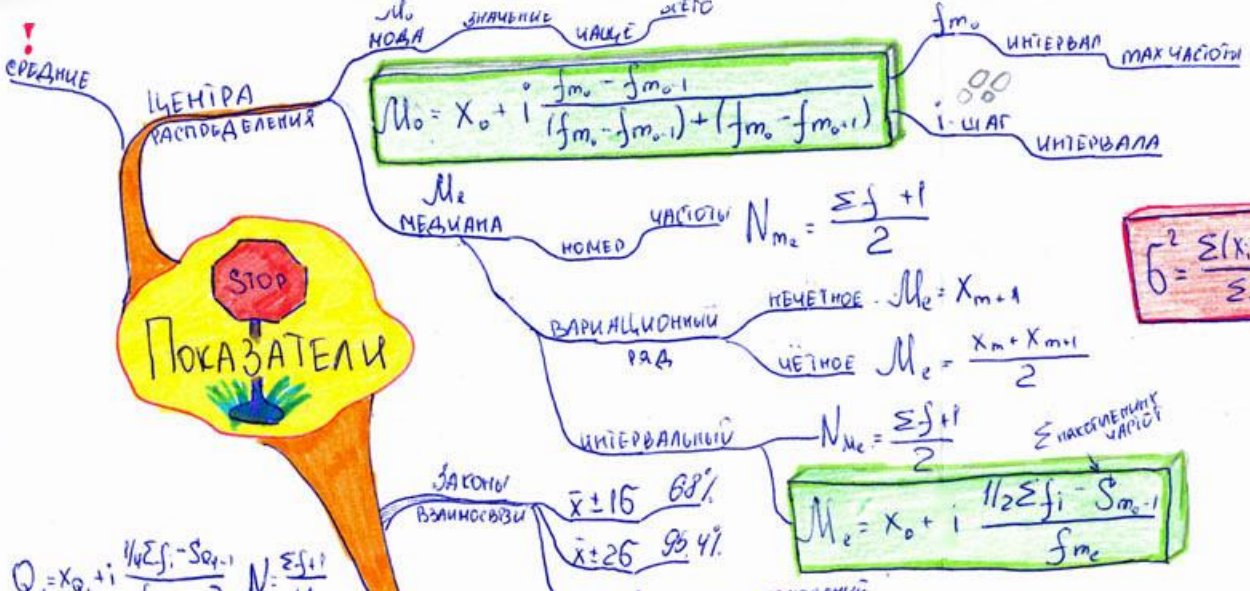 !
СРЕДНИЕ
ЦЕНТРА
РАСПРЕДЕЛЕНИЯ
Mo
МОДА
ЗНАЧЕНИЕ
ЧАЩЕ
ВСЕГО
Mo = Xo + i (fmo - fmo-1) / ((fmo - fmo-1) + (fmo - fmo+1))
fmo
ИНТЕРВАЛ
MAX ЧАСТОТЫ
i - ШАГ
ИНТЕРВАЛА
Me
МЕДИАНА
НОМЕР
ЧАСТОТЫ
Nme = (Σf + 1) / 2
ВАРИАЦИОННЫЙ
РЯД
НЕЧЁТНОЕ - Me = Xm+1
ЧЁТНОЕ Me = (Xm + Xm+1) / 2
ИНТЕРВАЛЬНЫЙ
NMe = (Σf + 1) / 2
Σ НАКОПЛЕННЫХ
ЧАСТОТ
Me = Xo + i (1/2Σfi - Sme-1) / fme
STOP
ПОКАЗАТЕЛИ
σ² = Σ(Xi
Σ
ЗАКОНЫ
ВЗАИМОСВЯЗИ
x̄ ± 1σ 68%
x̄ ± 2σ 95,4%